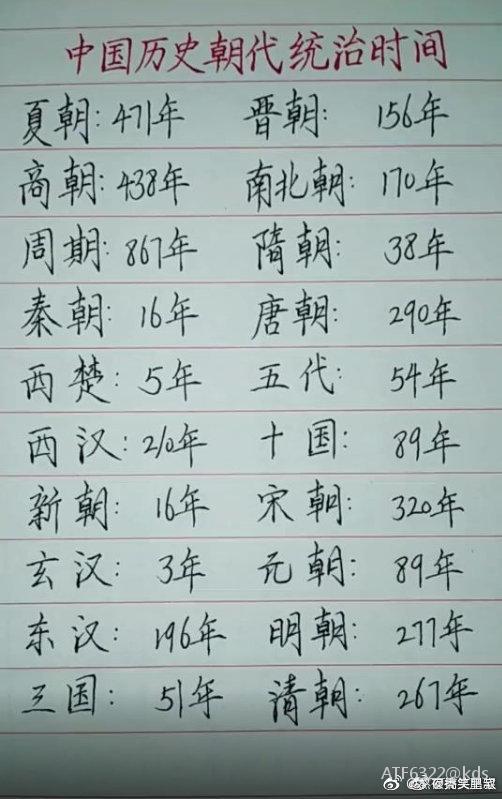 中国历史朝代统治时间
夏朝: 471年 晋朝: 156年
商朝: 438年 南北朝: 170年
周期: 867年 隋朝: 38年
秦朝: 16年 唐朝: 290年
西楚: 5年 五代: 54年
西汉: 210年 十国: 89年
新朝: 16年 宋朝: 320年
玄汉: 3年 元朝: 89年
东汉: 196年 明朝: 277年
三国: 51年 清朝: 267年
ATF6322@kds